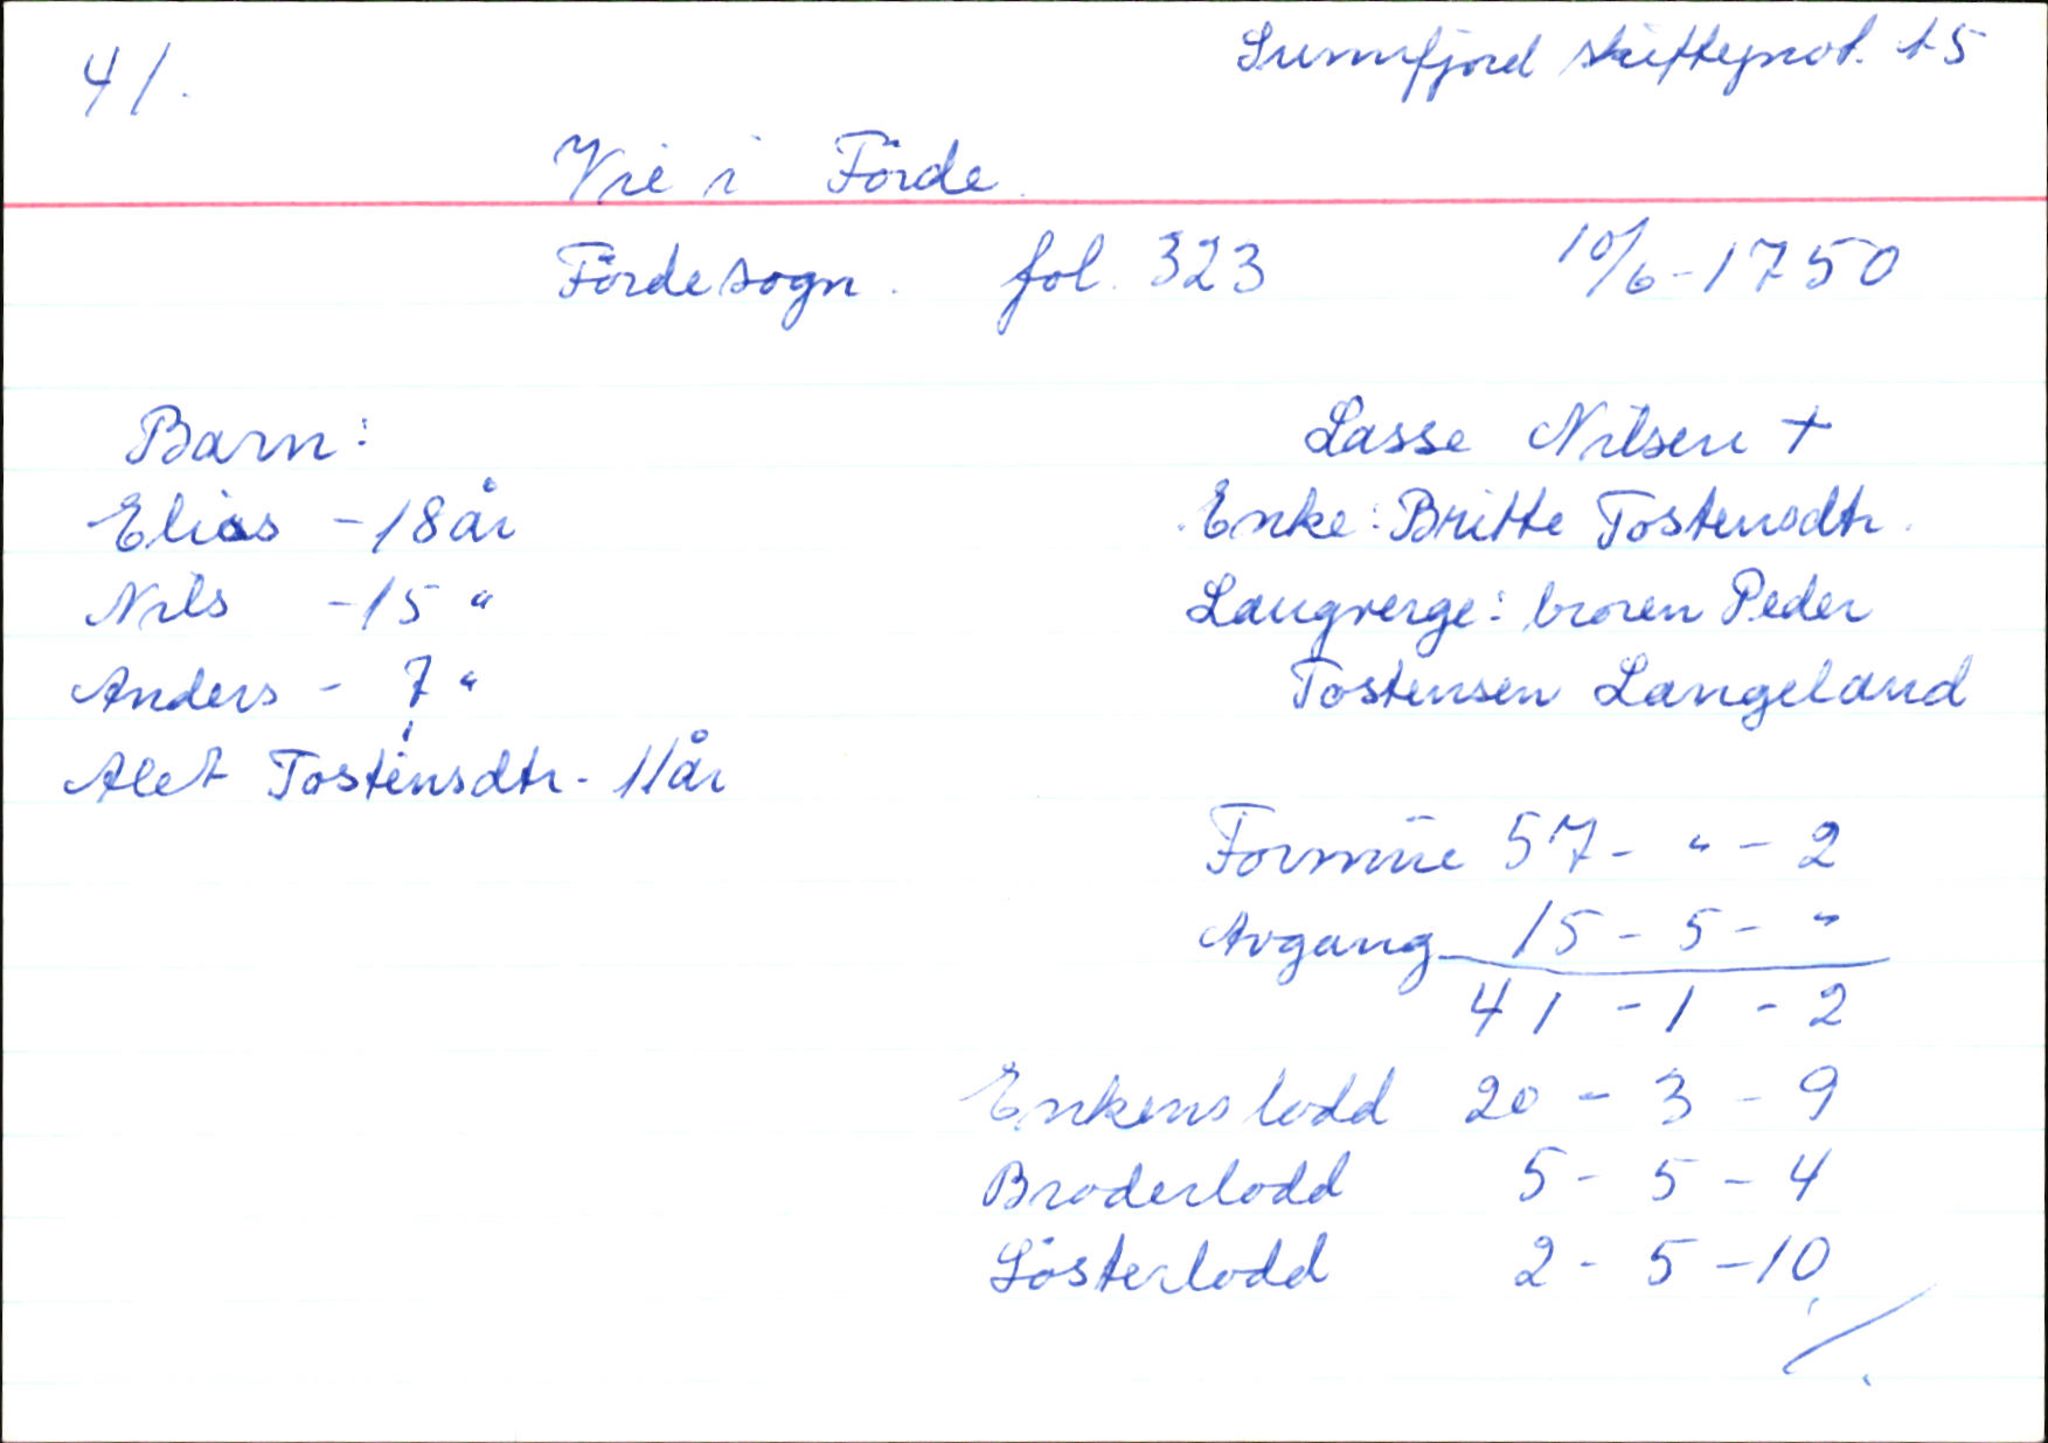 41.
Sunnfjord skifteprot. 15
Vie i Förde.
Förde sogn. fol. 323 10/6-1750
Barn:
Elias - 18 år
Nils - 15 "
Anders - 7 "
Alet Tostensdtr - 11 år
Lasse Nilsen +
Enke: Britte Tostensdtr.
Laugverge: broren Peder
Tostensen Langeland
Formue 57 - " - 2
Avgang 15 - 5 - "
41 - 1 - 2
Enkens lodd 20 - 3 - 9
Broderlodd 5 - 5 - 4
Sösterlodd 2 - 5 - 10